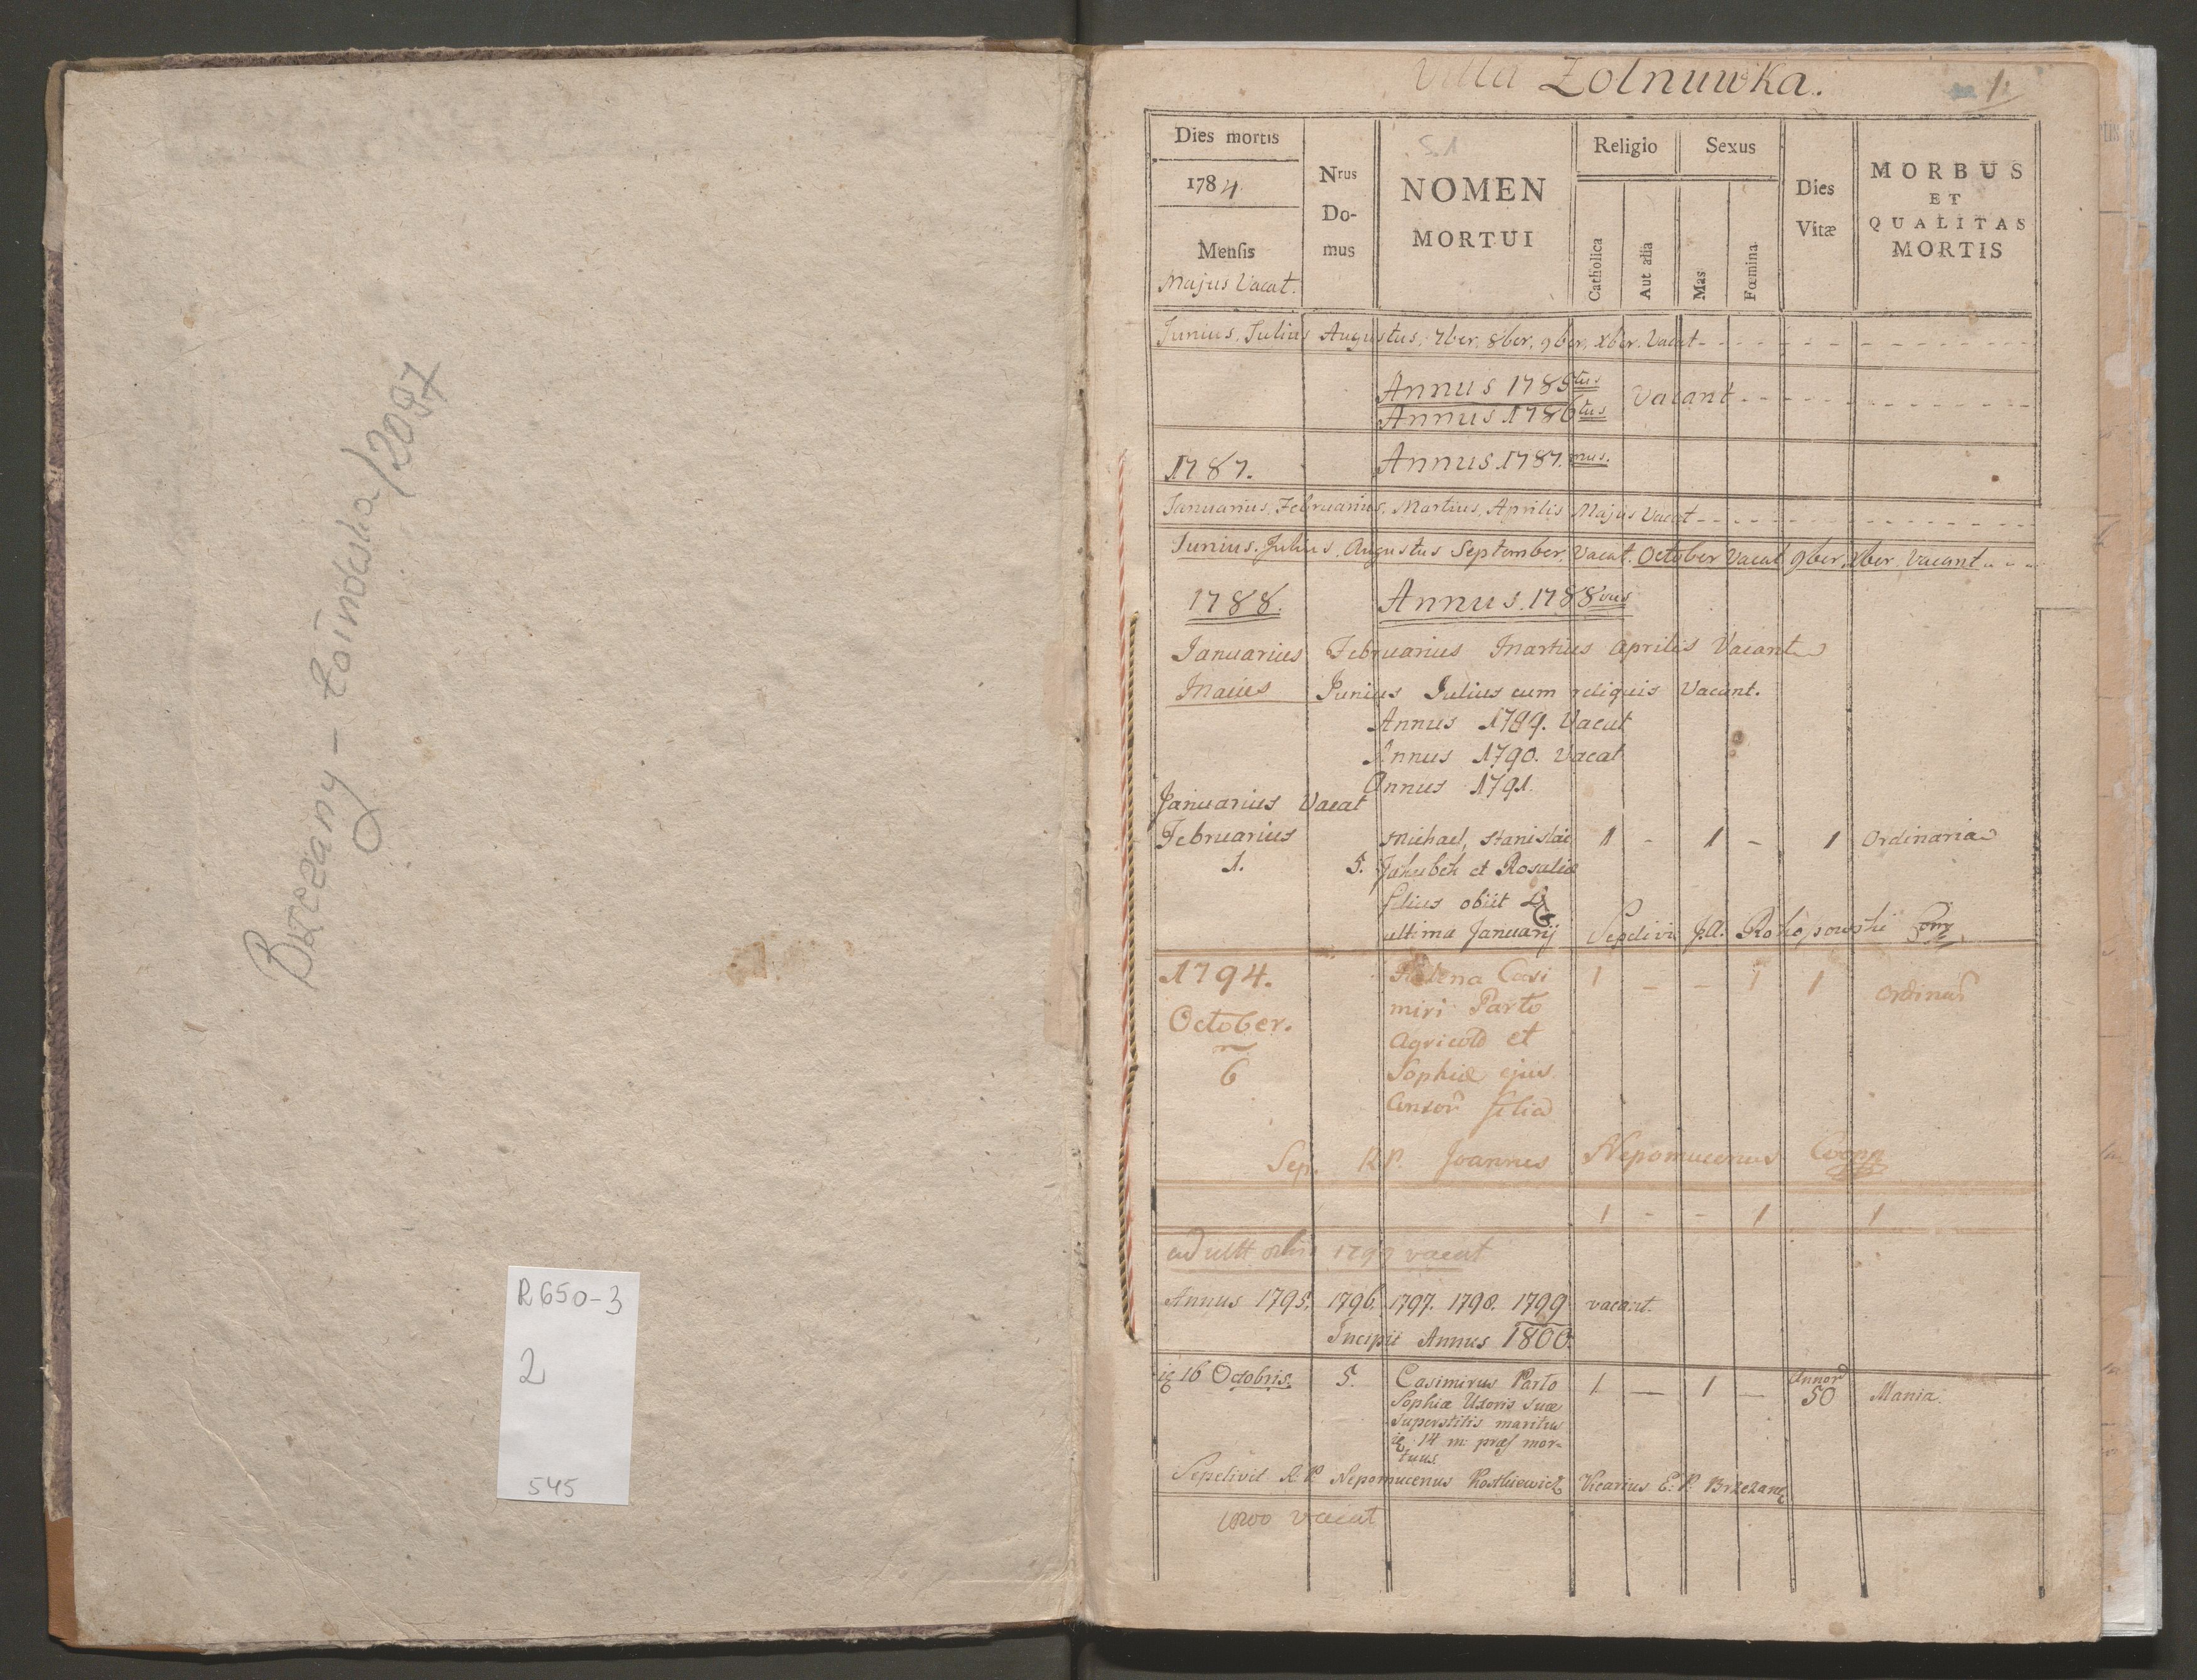 Brzeżany - Łoindeska/2097
R650-3
2
545
Villa Zolnuwka.
1.
Dies mortis
1784
Mensis
Majus Vacat.
Nrus
Do-
mus
S.1
NOMEN
MORTUI
Religio
Catholica
Aut alia
Sexus
Mas
Fœmina
Dies
Vitæ
MORBUS
ET
QUALITAS
MORTIS
Junius, Julius Augustus, 7ber, 8ber, 9ber, Xber. Vacat
Annus 1785tus
Annus 1786tus
Vacant
1787. Annus 1787.mus.
Januarius, Februarius, Martius, Aprilis Majus Vacat
Junius. Julius. Augustus September. Vacat. October Vacat 9ber. Xber. Vacant
1788. Annus. 1788vus
Januarius Februarius Martius Aprilis Vacant
Maius Junius Julius cum reliquis Vacant.
Annus 1789. Vacat
Annus 1790. Vacat
Annus 1791.
Januarius Vacat
Februarius Michael, Stanislai 1 - 1 - 1 Ordinaria
1. 5. Jakubek et Rosaliæ
filius obiit
ultima Januarij Sepelivi J.A.
1794. Helena Casi 1 - - 1 1 ordinar
October. miri Parto
Agricolæ et
6 Sophiæ ejus
Consor filia
Sep. R.P. Joannes Nepomucenus Coopr
1 - - 1 1
ad ult vacat
Annus 1795. 1796. 1797. 1798. 1799 vacant.
Incipit Annus 1800.
16 Octobris. 5. Casimirus Parto 1 — 1 — Annor 50 Mania.
Sophiæ Uxoris suæ
superstitis maritus
14 m: præs mor-
tuus
Sepelivit R.P. Nepomucenus Kostkiewicz Vicarius E.P. Brzezan
vacat